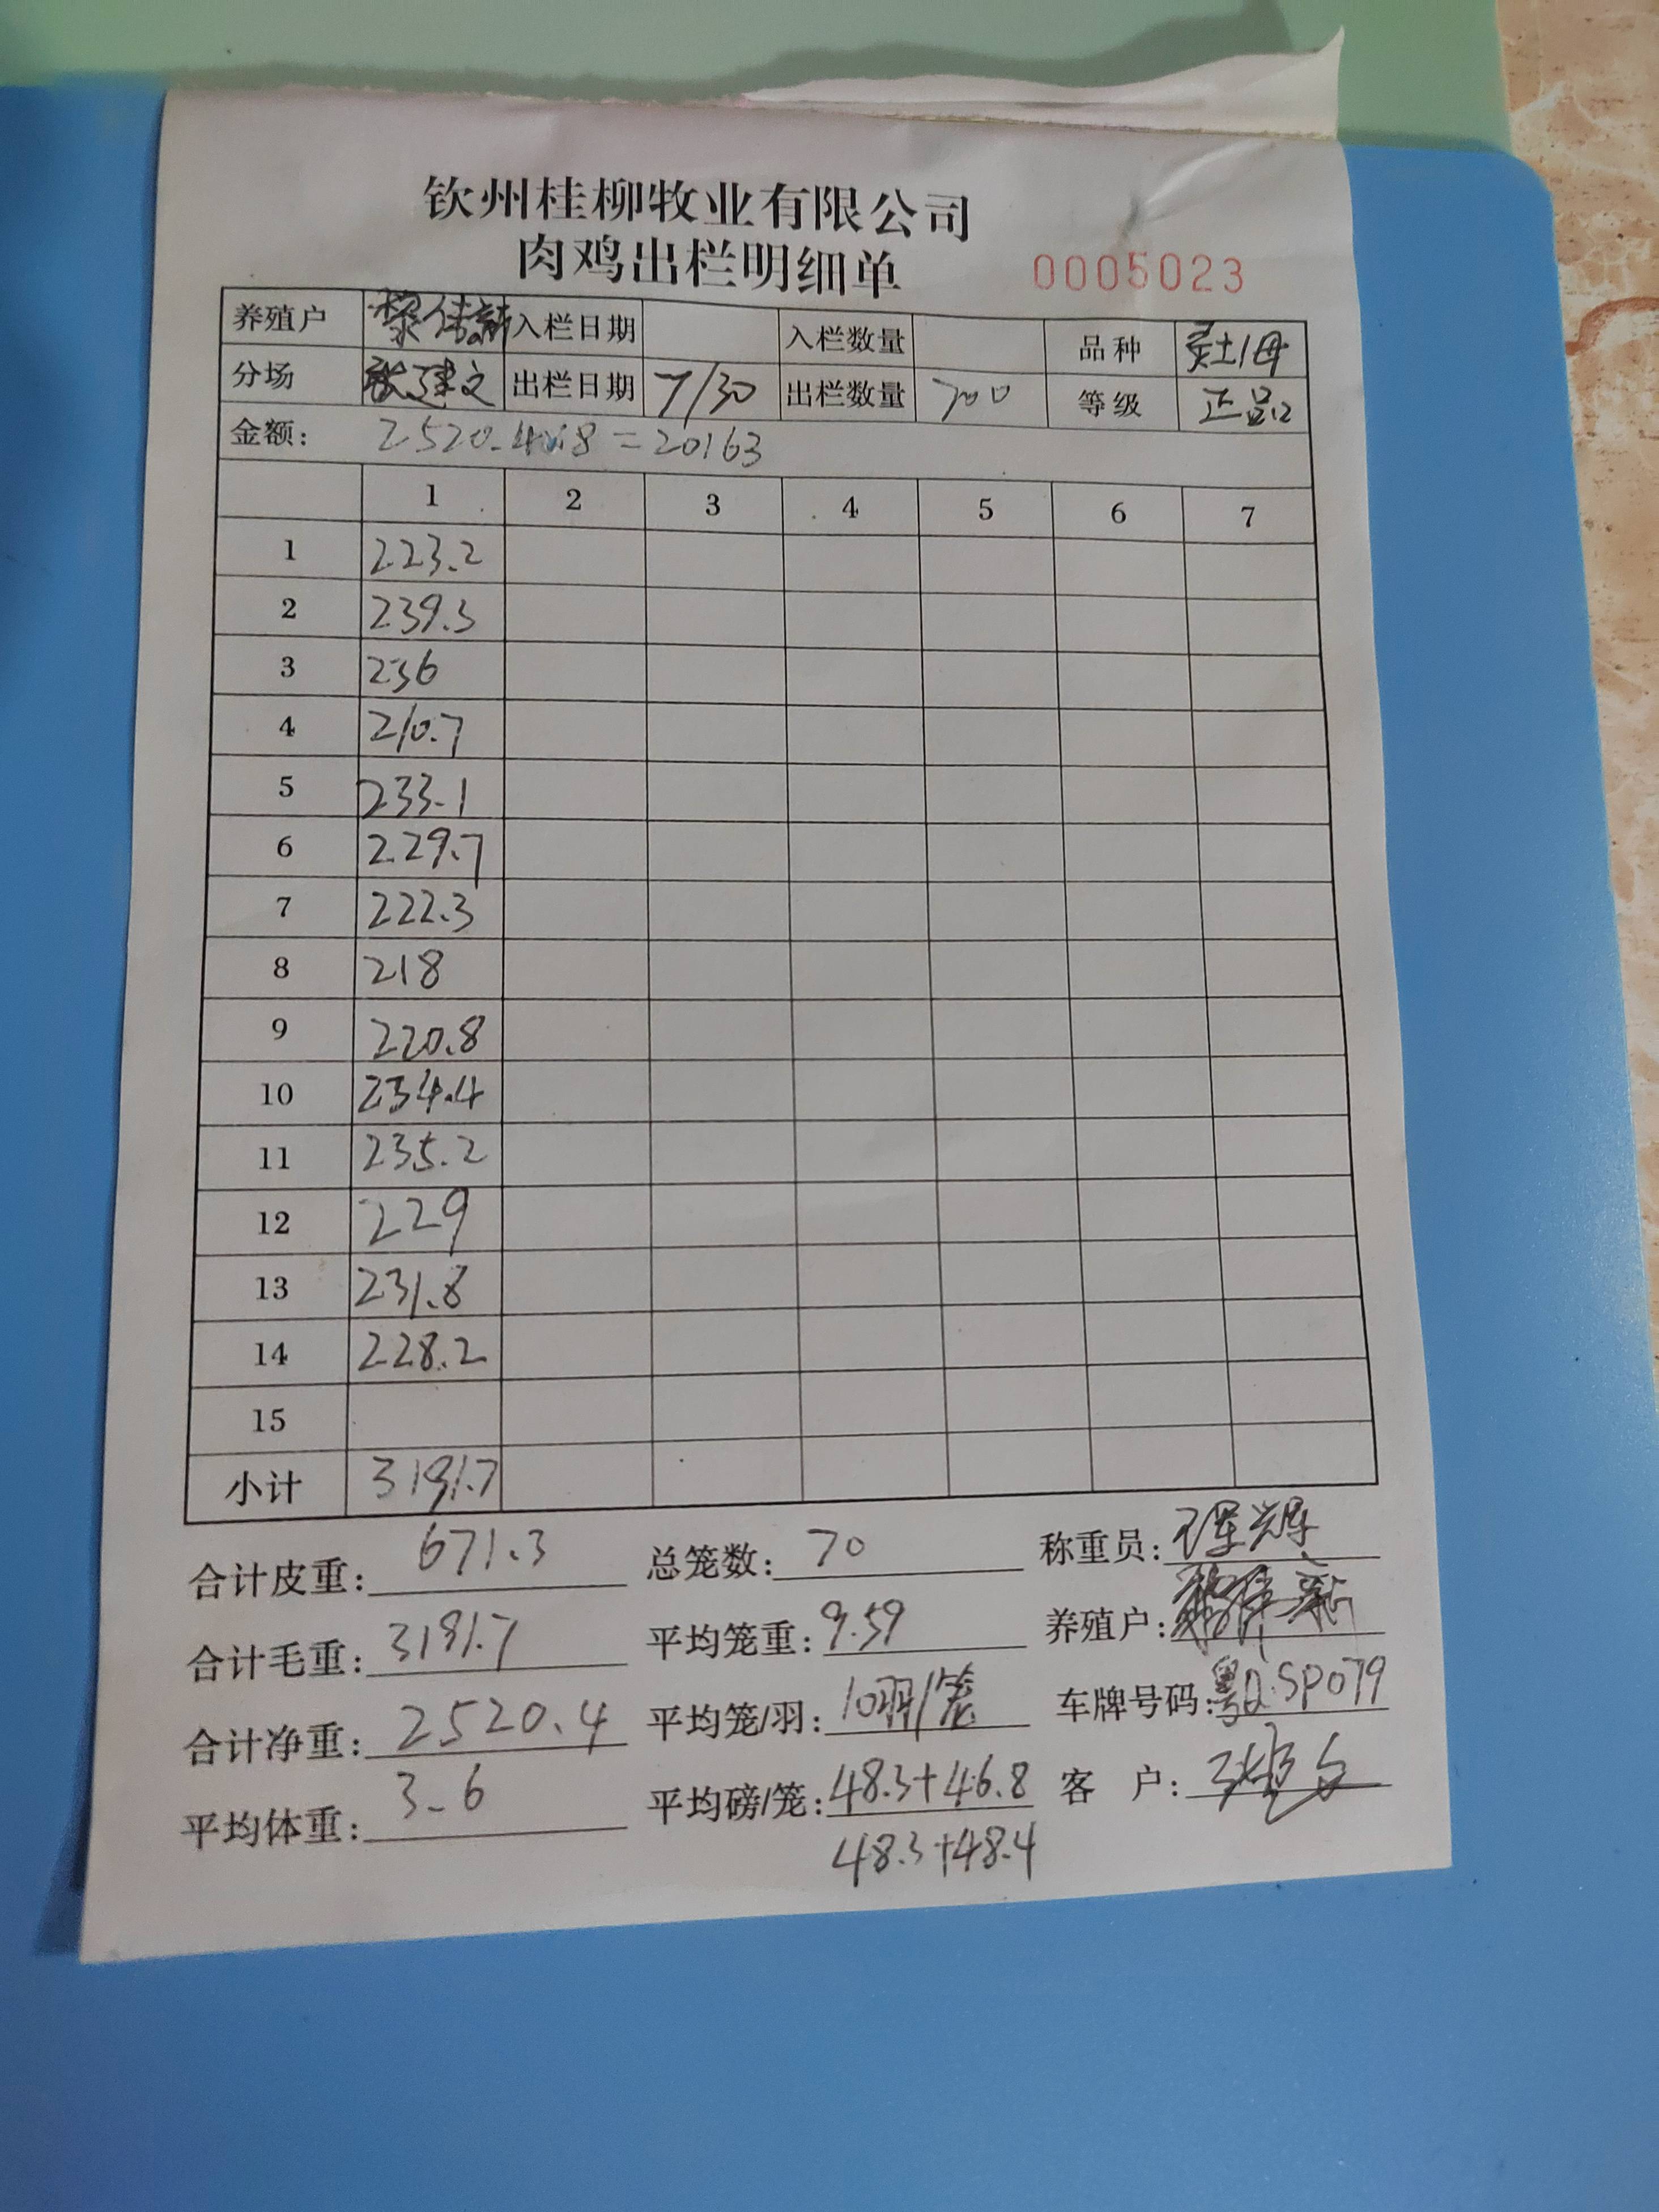 钦州桂柳牧业有限公司
肉鸡出栏明细单 0005023
养殖户 入栏日期 入栏数量 品种 灵土1母
分场 出栏日期 7/30 出栏数量 700 等级 正品
金额: 2520.4×8=20163
1 2 3 4 5 6 7
1 223.2
2 239.3
3 236
4 210.7
5 233.1
6 229.7
7 222.3
8 218
9 220.8
10 234.4
11 235.2
12 229
13 231.8
14 228.2
15
小计 3191.7
合计皮重: 671.3 总笼数: 70 称重员:
合计毛重: 3191.7 平均笼重: 9.59 养殖户:
合计净重: 2520.4 平均笼/羽: 10羽/笼 车牌号码: 粤Q.SP079
平均体重: 3.6 平均磅/笼: 48.3+46.8 客 户:
48.3+48.4